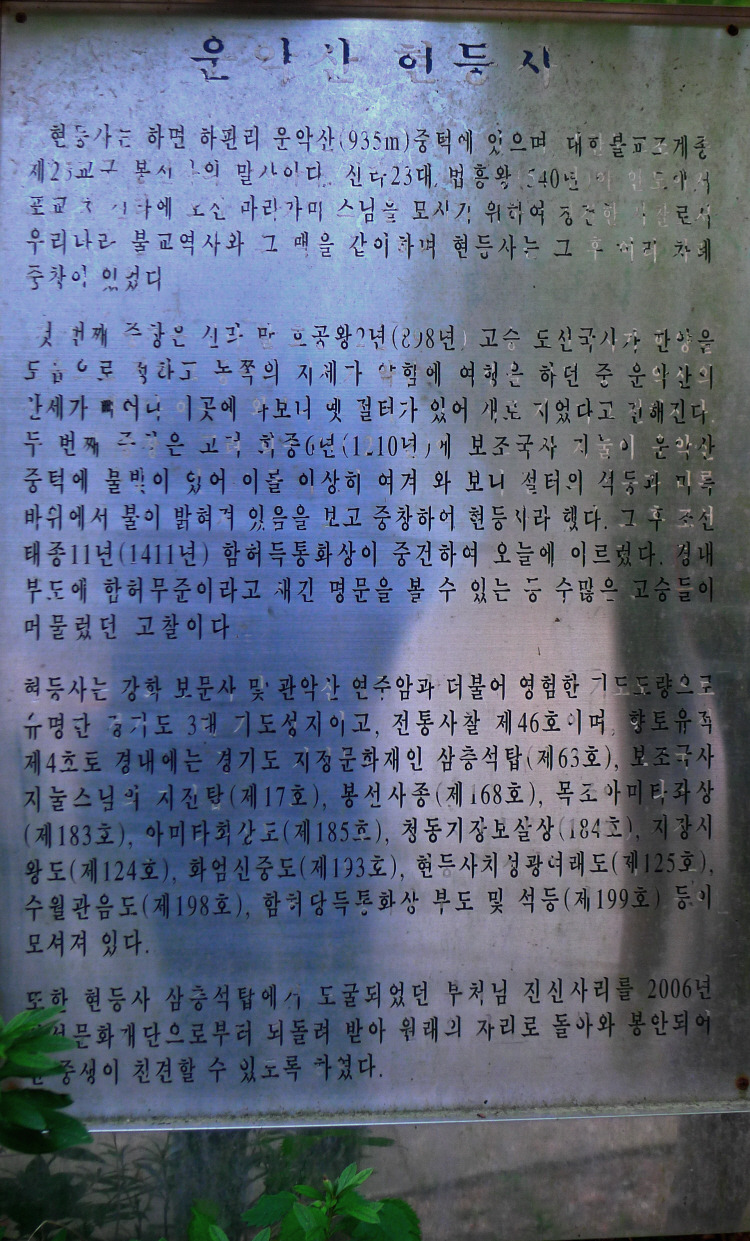 운악산 현등사
현등사는 하면 하판리 운악산(935m)중턱에 있으며 대한불교조계종
제25교구 봉선사의 말사이다. 신라23대 법흥왕 540년 인도에서
포교차 마라가미 스님을 모시기 위하여 창건한 사찰로서
우리나라 불교역사와 그 맥을 같이하며 현등사는 그 후 여러 차례
중창이 있었다
첫 번째 중창은 신라 말 효공왕2년(898년) 고승 도선국사가 한양을
도읍으로 정하고 동쪽의 지세가 약함에 여행을 하던 중 운악산의
산세가 빼어나 이곳에 와보니 옛 절터가 있어 새로 지었다고 전해진다.
두 번째 중창은 고려 희종6년(1210년)에 보조국사 지눌이 운악산
중턱에 불빛이 있어 이를 이상히 여겨 와 보니 절터의 석등과 미륵
바위에서 불이 밝혀져 있음을 보고 중창하여 현등사라 했다. 그 후 조선
태종11년(1411년) 함허득통화상이 중건하여 오늘에 이르렀다. 경내
부도에 함허무준이라고 새긴 명문을 볼 수 있는 등 수많은 고승들이
머물렀던 고찰이다
현등사는 강화 보문사 및 관악산 연주암과 더불어 영험한 기도도량으로
유명한 경기도 3대 기도성지이고, 전통사찰 제46호이며, 향토유적
제4호로 경내에는 경기도 지정문화재인 삼층석탑(제63호), 보조국사
지눌스님의 지진탑(제17호), 봉선사종(제168호), 목조아미타좌상
(제183호), 아미타회상도(제185호), 청동지장보살상(184호), 지장시
왕도(제124호), 화엄신중도(제193호), 현등사치성광여래도(제125호),
수월관음도(제198호), 함허당득통화상 부도 및 석등(제199호) 등이
모셔져 있다.
또한 현등사 삼층석탑에서 도굴되었던 부처님 진신사리를 2006년
문화재단으로부터 되돌려 받아 원래의 자리로 돌아와 봉안되어
중생이 친견할 수 있도록 하였다.